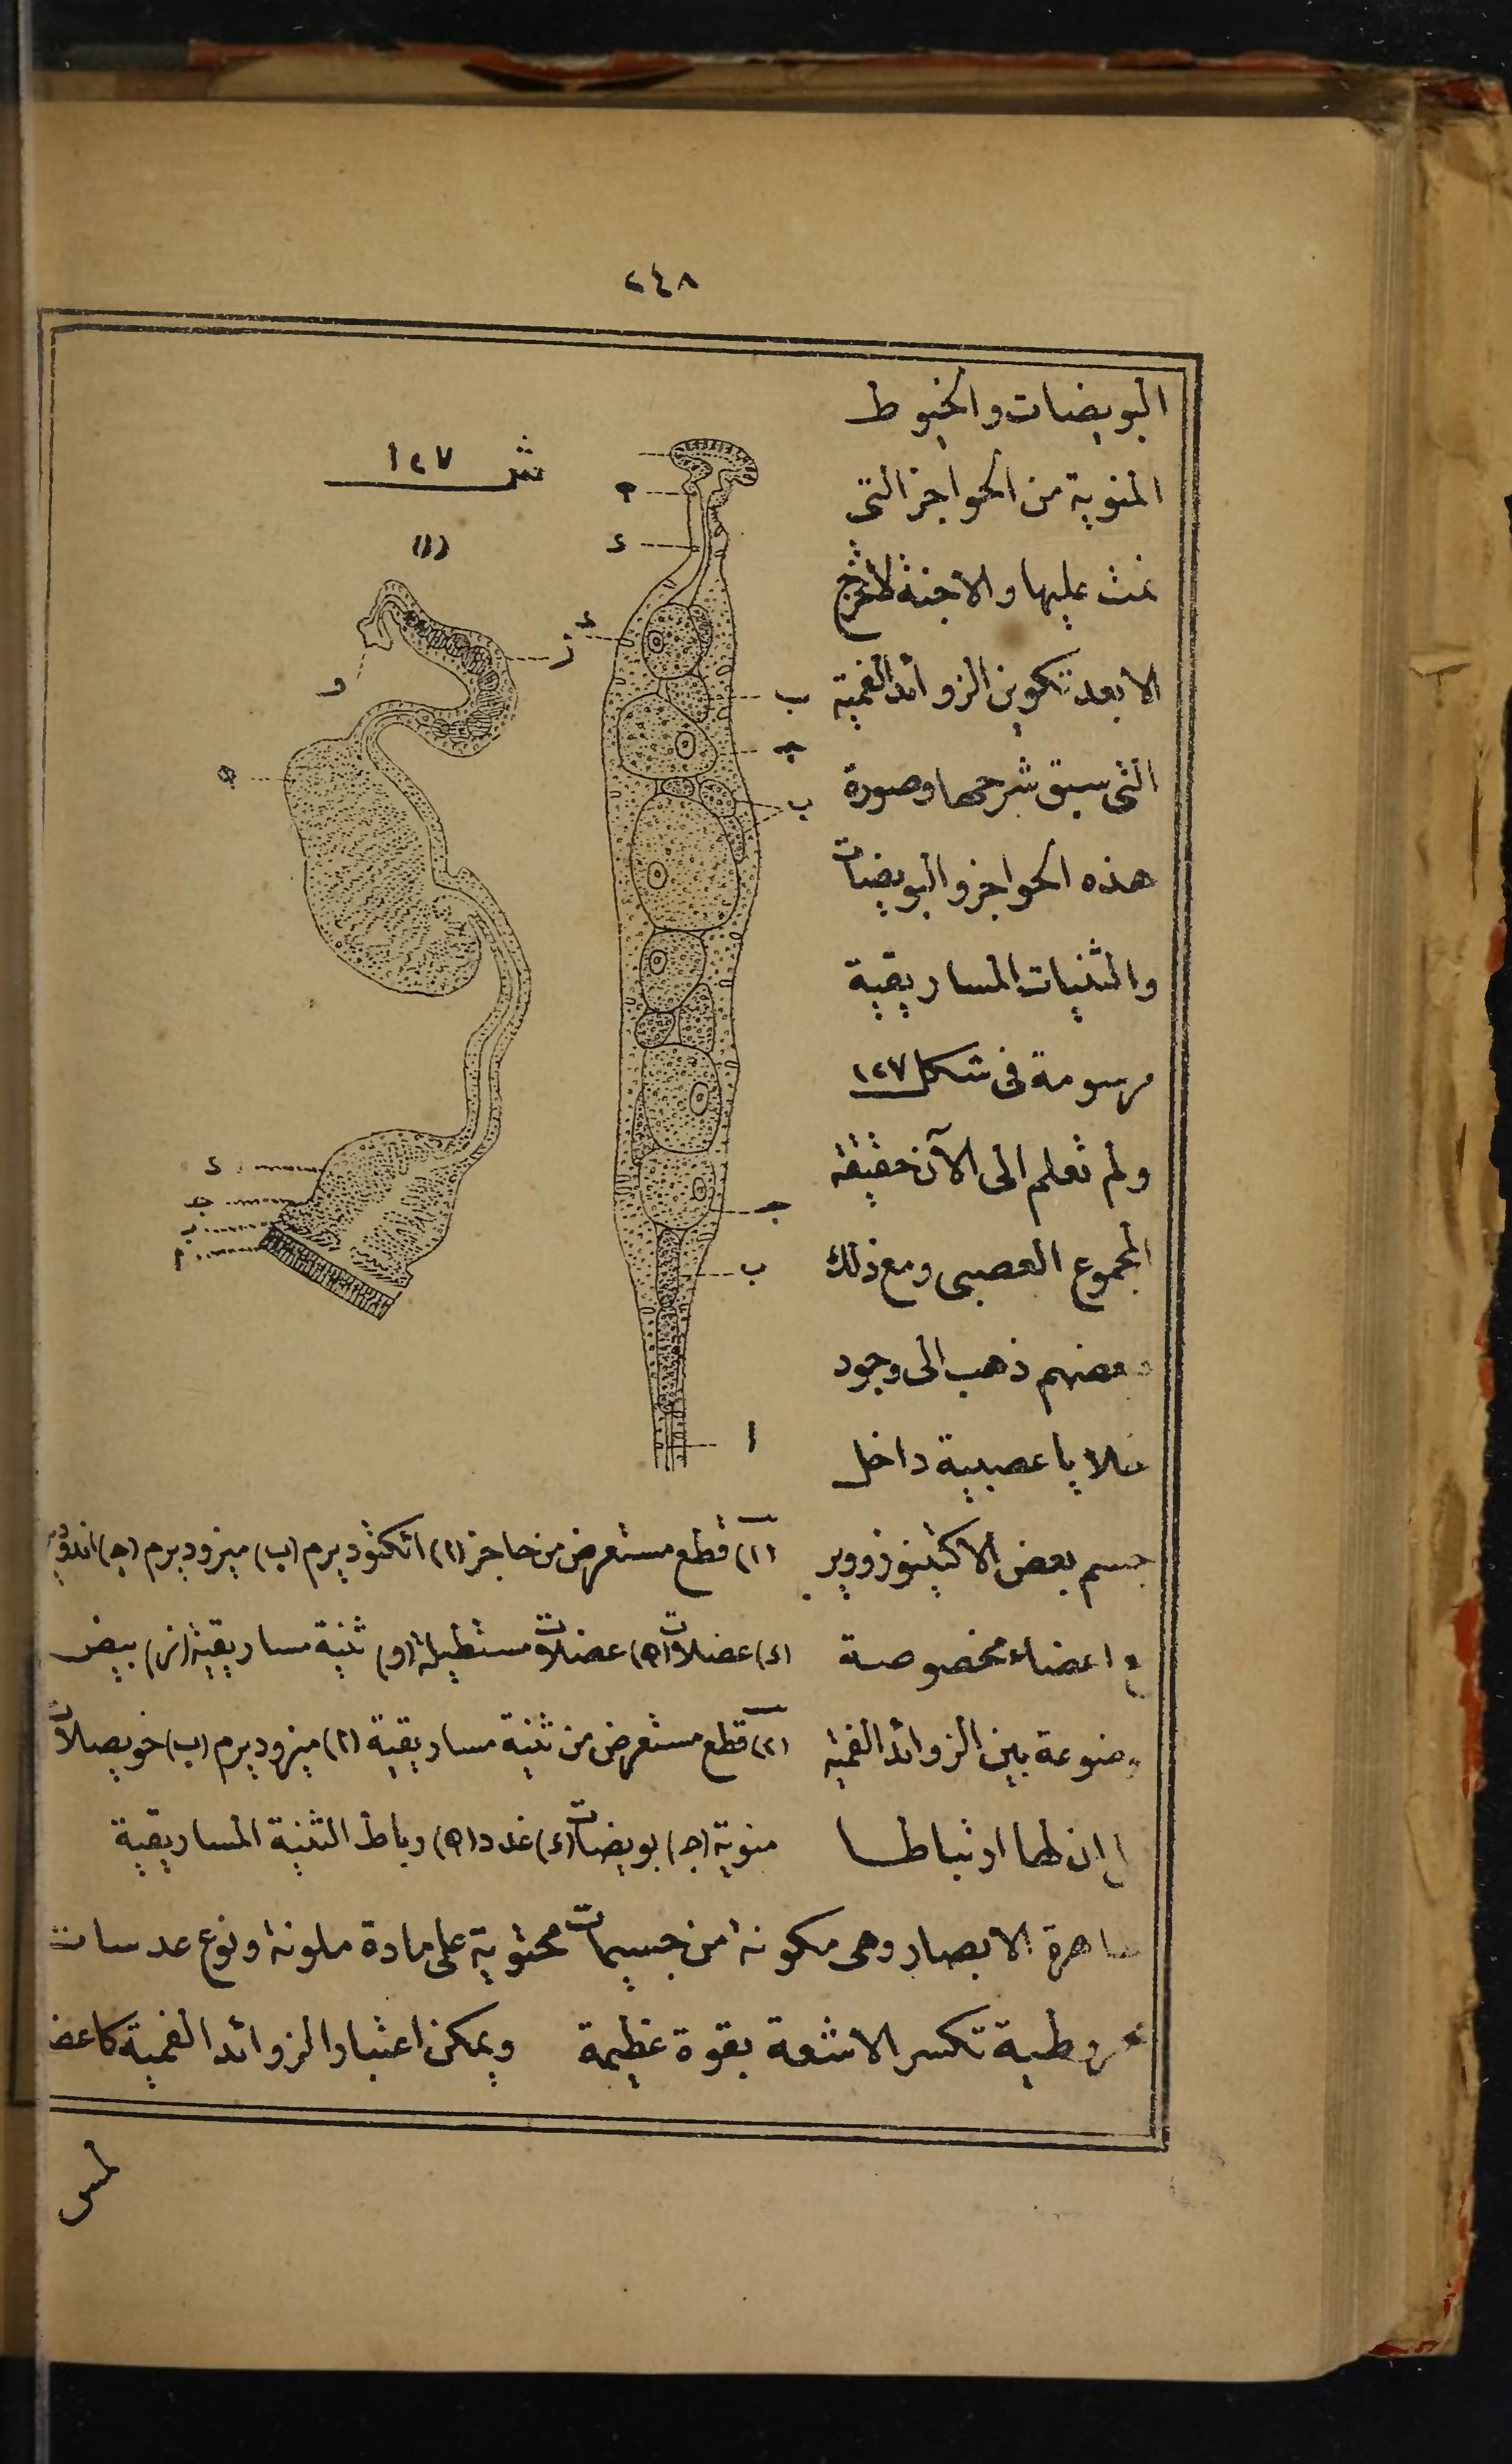 ٢٤٨
البويضات والخيوط
المنوية من الحواجز التى
نمت عليها والاجنة لاتخرج
الا بعد تكوين الزوائد الفمية
التى سبق شرحها وصورة
هذه الحواجز والبويضات
والثنيات المساريقية
مرسومة فى شكل ١٢٧
ولم تعلم الى الآن حقيقة
المجموع العصبى ومع ذلك
فبعضهم ذهب الى وجود
خلايا عصبية داخل
جسم بعض الاكتينوزووير
اعضاء مخصوصة
موضوعة بين الزوائد الفمية
ان لها ارتباطا
ش ١٢٧
(١)
و
ز
ه
د
جـ
ب
م
م
د
د
ب
جـ
ب
جـ
ب
ا
(١) قطع مستعرض من حاجز (ا) اكتوديرم (ب) ميزوديرم (جـ) اندوديرم
(د) عضلات (ه) عضلات مستطيلة (و) ثنية مساريقية (ز) بيض
(٢) قطع مستعرض من ثنية مساريقية (ا) ميزوديرم (ب) حويصلات
منوية (جـ) بويضات (د) غدد (ه) رباط الثنية المساريقية
ظاهرة الابصار وهى مكونة من جسيمات محتوية على مادة ملونة ونوع عدسات
مخروطية تكسر الاشعة بقوة عظيمة ويمكن اعتبار الزوائد الفمية كاعضا
لمس